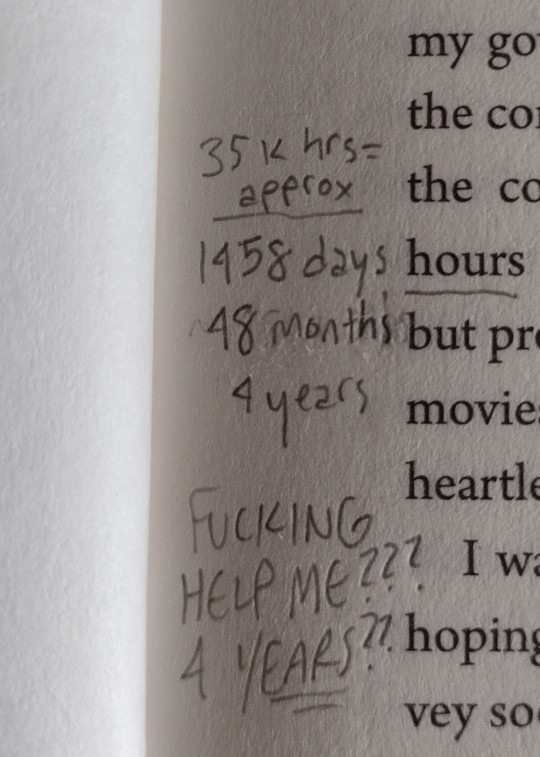 35K hrs=
approx
1458 days
48 months
4 years
FUCKING
HELP ME???
4 YEARS??
my
the
the
hours
but
movies
I
hoping
vey